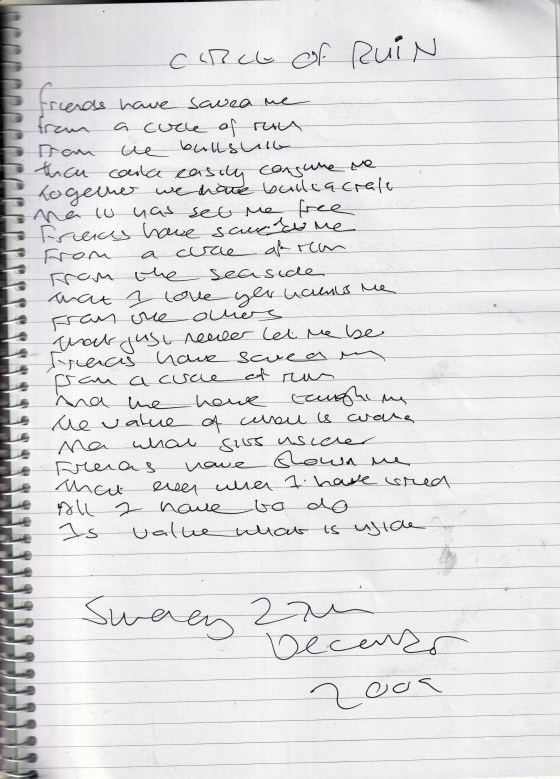 CIRCLE OF RUIN
Friends have saved me
from a circle of ruin
From the bullshit
that could easily consume me
together we have built a craft
And it has set me free
Friends have saved me
From a circle of ruin
From the seaside
that I love yet haunts me
From the others
that just never let me be
Friends have saved me
From a circle of ruin
And have taught me
the value of what is
And what
Friends have shown me
that even when I have tried
All I have to do
Is value what is inside
Sunday 27th
December
2009